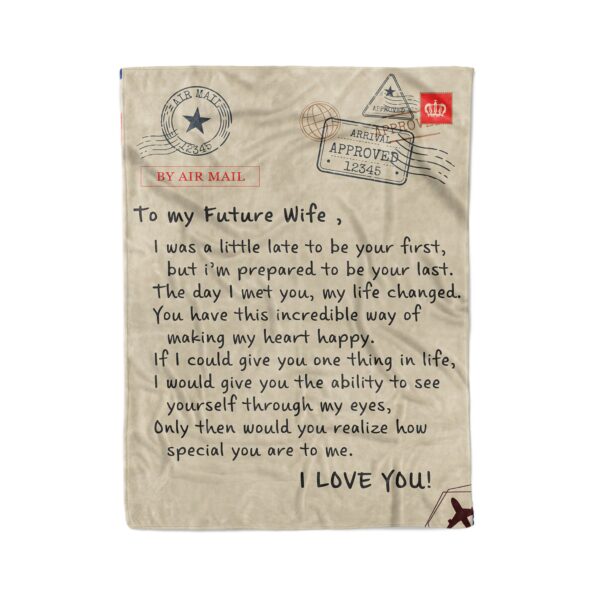 AIR MAIL
12345
APPROVED
APPROVED
ARRIVAL
APPROVED
12345
BY AIR MAIL
To my Future Wife ,
I was a little late to be your first,
but i'm prepared to be your last.
The day I met you, my life changed.
You have this incredible way of
making my heart happy.
If I could give you one thing in life,
I would give you the ability to see
yourself through my eyes,
Only then would you realize how
special you are to me.
I LOVE YOU!